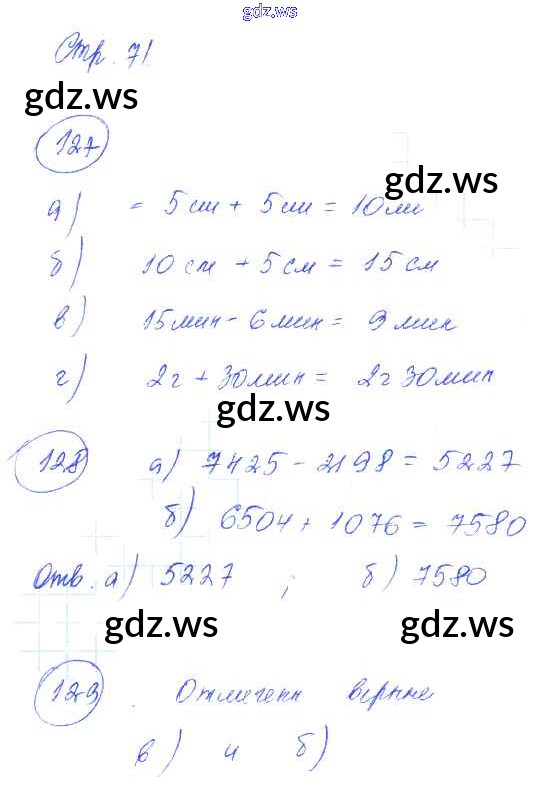 gdz.ws
Стр. 71.
gdz.ws
127
gdz.ws
а) = 5 см + 5 см = 10 см
б) 10 см + 5 см = 15 см
в) 15 мин - 6 мин = 9 мин
г) 2 г + 30 мин = 2 г 30 мин
gdz.ws
128 а) 7425 - 2198 = 5227
б) 6504 + 1076 = 7580
Отв. а) 5227 ; б) 7580
gdz.ws gdz.ws
129. Отмечены верные
в) и б)